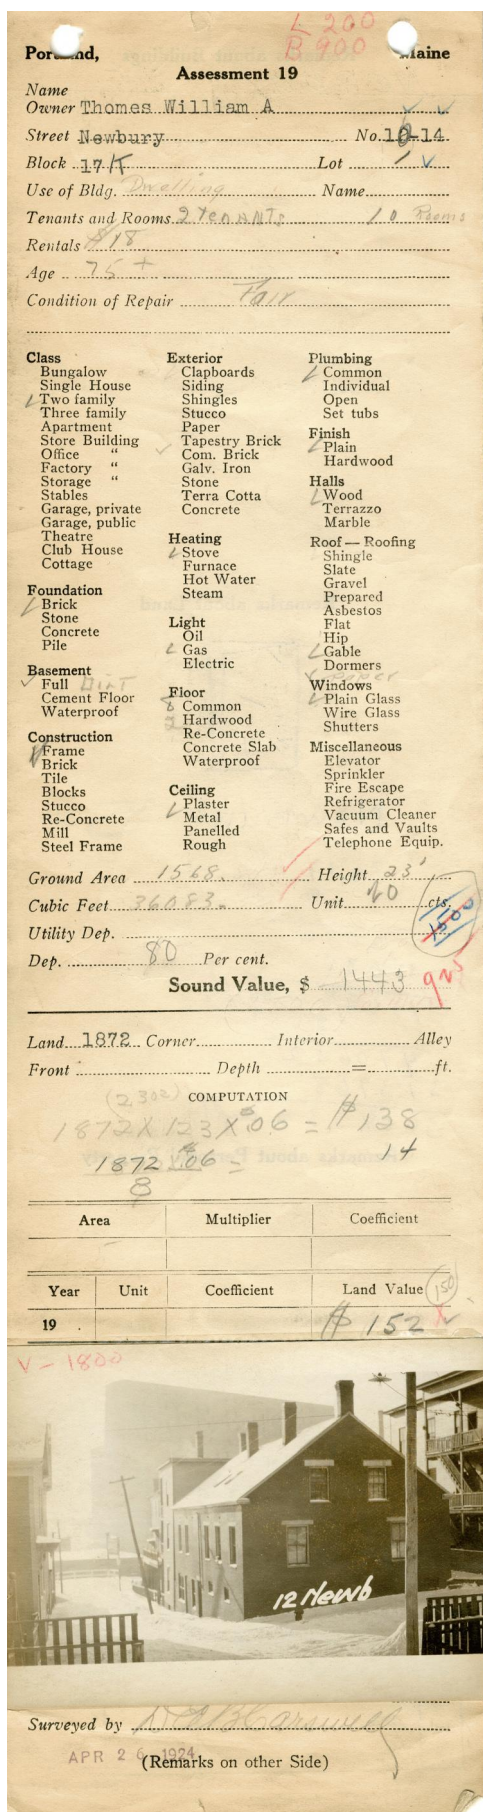 L 200
B 900
Portland, Maine
Assessment 19
Name
Owner Thomes William A
Street Newbury No. 10-14
Block 17 K Lot 1
Use of Bldg. Dwelling Name
Tenants and Rooms 2 Tenants 10 Rooms
Rentals $18
Age 75 +
Condition of Repair Fair
Class
Bungalow
Single House
Two family
Three family
Apartment
Store Building
Office "
Factory "
Storage "
Stables
Garage, private
Garage, public
Theatre
Club House
Cottage
Foundation
Brick
Stone
Concrete
Pile
Basement
Full Dirt
Cement Floor
Waterproof
Construction
Frame
Brick
Tile
Blocks
Stucco
Re-Concrete
Mill
Steel Frame
Exterior
Clapboards
Siding
Shingles
Stucco
Paper
Tapestry Brick
Com. Brick
Galv. Iron
Stone
Terra Cotta
Concrete
Heating
Stove
Furnace
Hot Water
Steam
Light
Oil
Gas
Electric
Floor
Common
2 Hardwood
Re-Concrete
Concrete Slab
Waterproof
Ceiling
Plaster
Metal
Panelled
Rough
Plumbing
Common
Individual
Open
Set tubs
Finish
Plain
Hardwood
Halls
Wood
Terrazzo
Marble
Roof — Roofing
Shingle
Slate
Gravel
Prepared
Asbestos
Flat
Hip
Gable
Dormers
Paper
Windows
Plain Glass
Wire Glass
Shutters
Miscellaneous
Elevator
Sprinkler
Fire Escape
Refrigerator
Vacuum Cleaner
Safes and Vaults
Telephone Equip.
Ground Area 1568. Height 23'
Cubic Feet 36083. Unit 20 cts.
1500
Utility Dep.
Dep. 80 Per cent.
Sound Value, $ 1443 925
Land 1872 Corner Interior Alley
Front Depth = ft.
(2302) COMPUTATION
1872 X 123 X .06 = $138
1872 X .06 = 14
8
Area Multiplier Coefficient
Year Unit Coefficient Land Value 150
19 $152
V - 1800
12 Newb
Surveyed by Carswell
APR 26 1924
(Remarks on other Side)